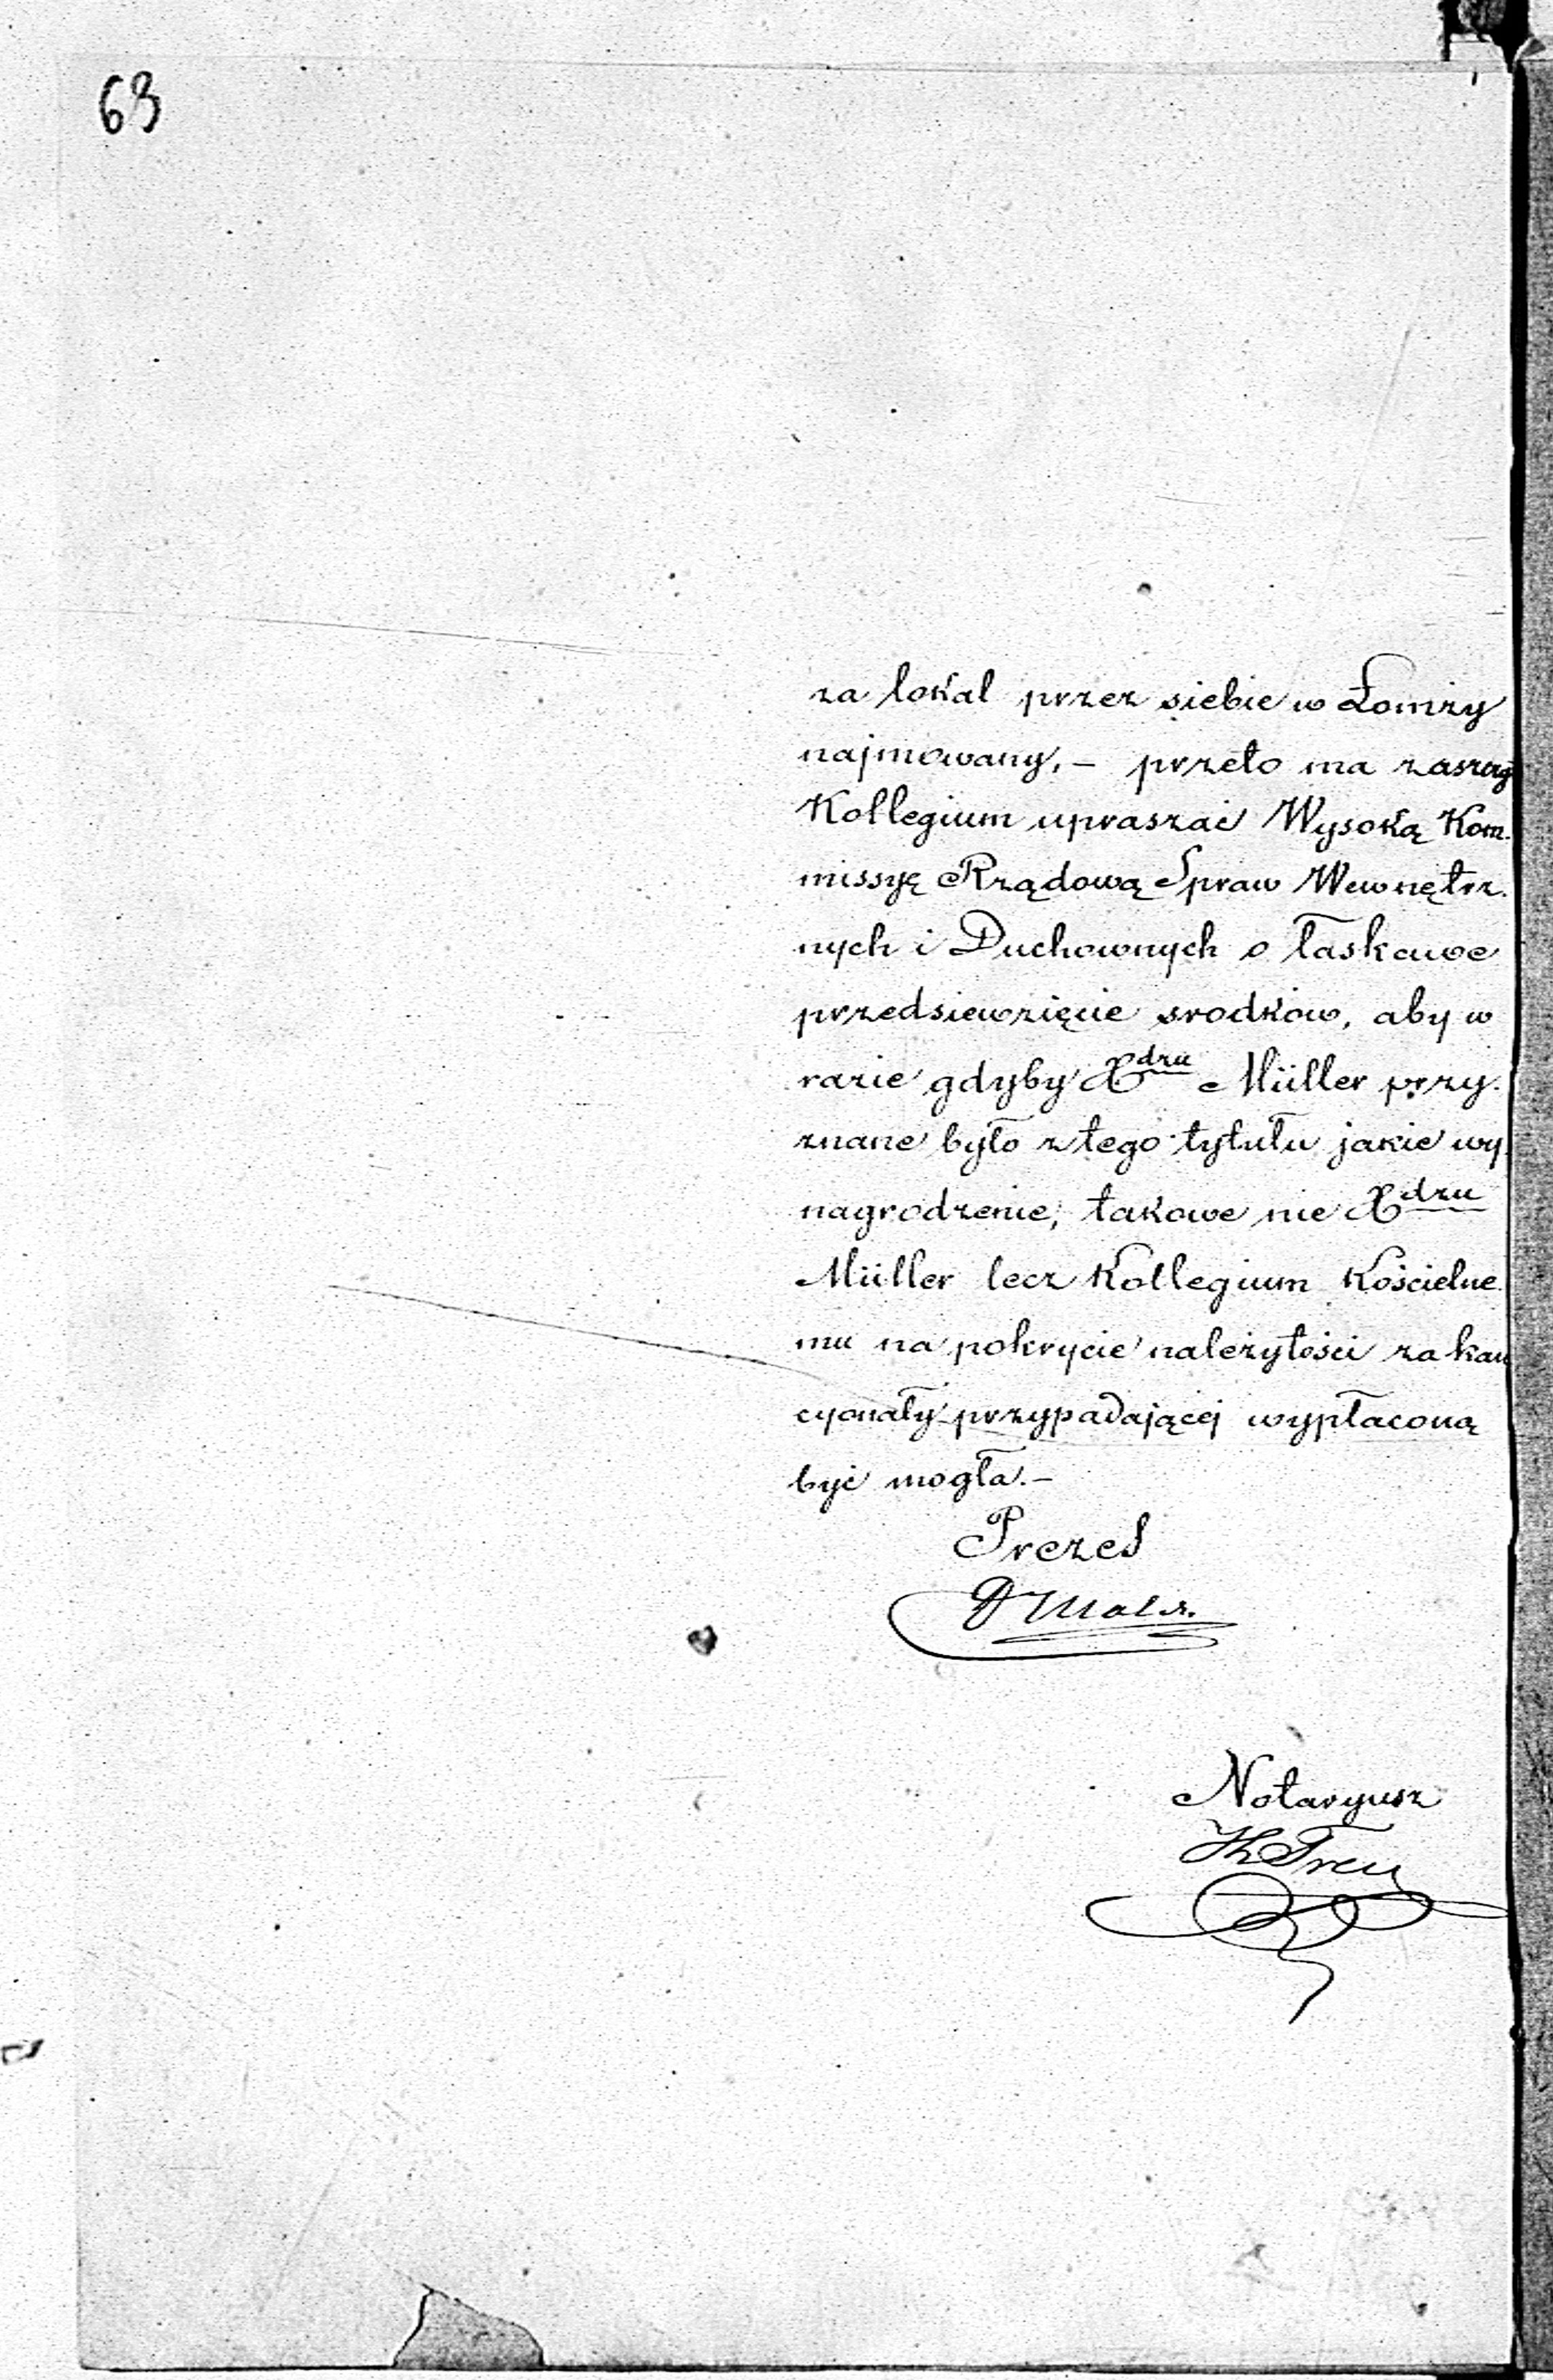 63
za lokal przez siebie w Łomży
najmowany, – przeto ma zaszczyt
Kollegium upraszać Wysoką Kom-
missyę Rządową Spraw Wewnętrz-
nych i Duchownych o łaskawe
przedsiewzięcie srodkow, aby w
razie gdyby Xdzu Müller przy-
znane było z tego tytułu jakie wy-
nagrodzenie, takowe nie Xdzu
Müller lecz Kollegium Kościelne-
mu na pokrycie należytości za kan
cyonały przypadającej wypłaconą
być mogła. –
Prezes
Notaryusz